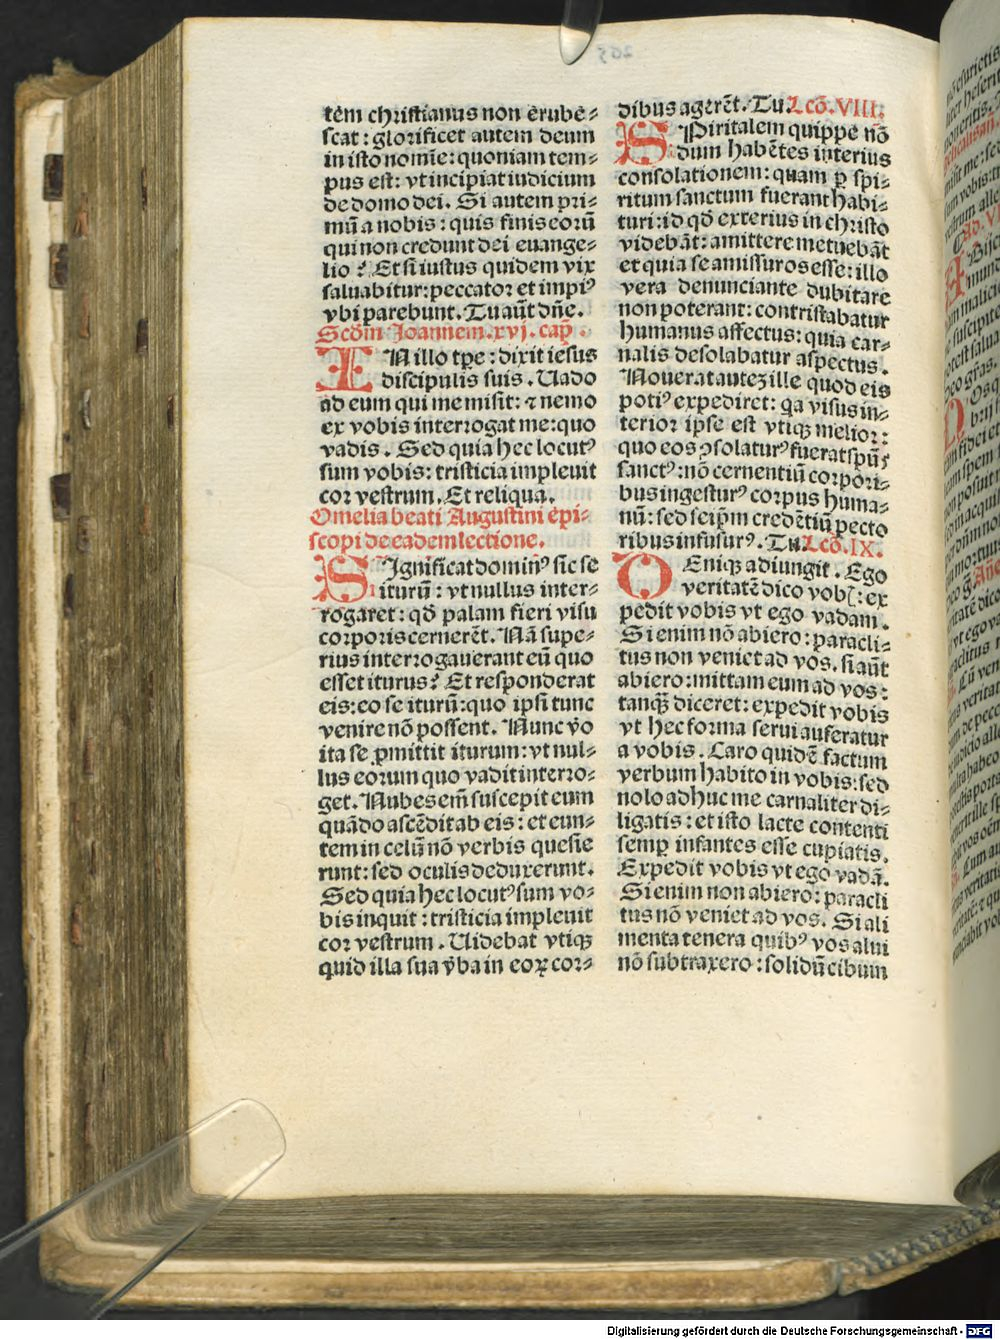 tem christianus non erube⸗
scat : glorificet autem deum
in isto nomie : quoniam tem⸗
pus est : vt incipiat iudicium
de domo dei . Si autem pri⸗
mū a nobis : quis finis eorū
qui non credunt dei euange⸗
lio ? Et si iustus quidem vix
saluabitur : peccator et impiꝰ
vbi parebunt . Tu aūt dn̄e .
Scd̄m Joannem . xvj . cap̄ .
IN illo tp̄e : dixit iesus
discipulis suis . Uado
ad eum qui me misit : ⁊ nemo
ex vobis interrogat me : quo
vadis . Sed quia hec locutꝰ
sum vobis : tristicia impleuit
cor vestrum . Et reliqua .
Omelia beati Augustini epi⸗
scopi de eadem lectione .
SIgnificat dominꝰ sic se
iturū : vt nullus inter⸗
rogaret : qd̄ palam fieri visu
corporis cernerēt . Nā supe⸗
rius interrogauerant eū quo
esset iturus ? Et responderat
eis : eo se iturū : quo ipsi tunc
venire nō possent . Nunc v̄o
ita se ꝓmittit iturum : vt nul⸗
lus eorum quo vadit interro⸗
get . Nubes em̄ suscepit eum
quādo ascēdit ab eis : et eun⸗
tem in celū nō verbis quesie
runt : sed oculis deduxerunt .
Sed quia hec locutꝰ sum vo⸗
bis inquit : tristicia impleuit
cor vestrum . Uidebat vtiqꝫ
quid illa sua v̄ba in eoꝝ cor⸗
dibus agerēt . Tu . Lcō . VIII .
SPiritalem quippe nō
dum habētes interius
consolationem : quam ꝑ spi⸗
ritum sanctum fuerant habi⸗
turi : id qd̄ exterius in christo
videbāt : amittere metuebāt
et quia se amissuros esse : illo
vera denunciante dubitare
non poterant : contristabatur
humanus affectus : quia car⸗
nalis desolabatur aspectus .
Nouerat auteꝫ ille quod eis
potiꝰ expediret : qa visus in⸗
terior ipse est vtiqꝫ melior :
quo eos ꝯsolaturꝰ fuerat spūs
sanctꝰ : nō cernentiū corpori⸗
bus ingesturꝰ corpus huma⸗
nū : sed seip̄m credētiū pecto
ribus infusurꝰ . Tu . Lcō . IX .
DEniqꝫ adiungit . Ego
veritatē dico vob̄ : ex
pedit vobis vt ego vadam .
Si enim nō abiero : paracli⸗
tus non veniet ad vos . si aūt
abiero : mittam eum ad vos :
tanqꝫ̄ diceret : expedit vobis
vt hec forma serui auferatur
a vobis . Caro quidē factum
verbum habito in vobis : sed
nolo adhuc me carnaliter di⸗
ligatis : et isto lacte contenti
semꝑ infantes esse cupiatis .
Expedit vobis vt ego vadā .
Si enim non abiero : paracli
tus nō veniet ad vos . Si ali
menta tenera quibꝰ vos alui
nō subtraxero : solidū cibum
Digitalisierung gefördert durch die Deutsche Forschungsgemeinschaft - DFG